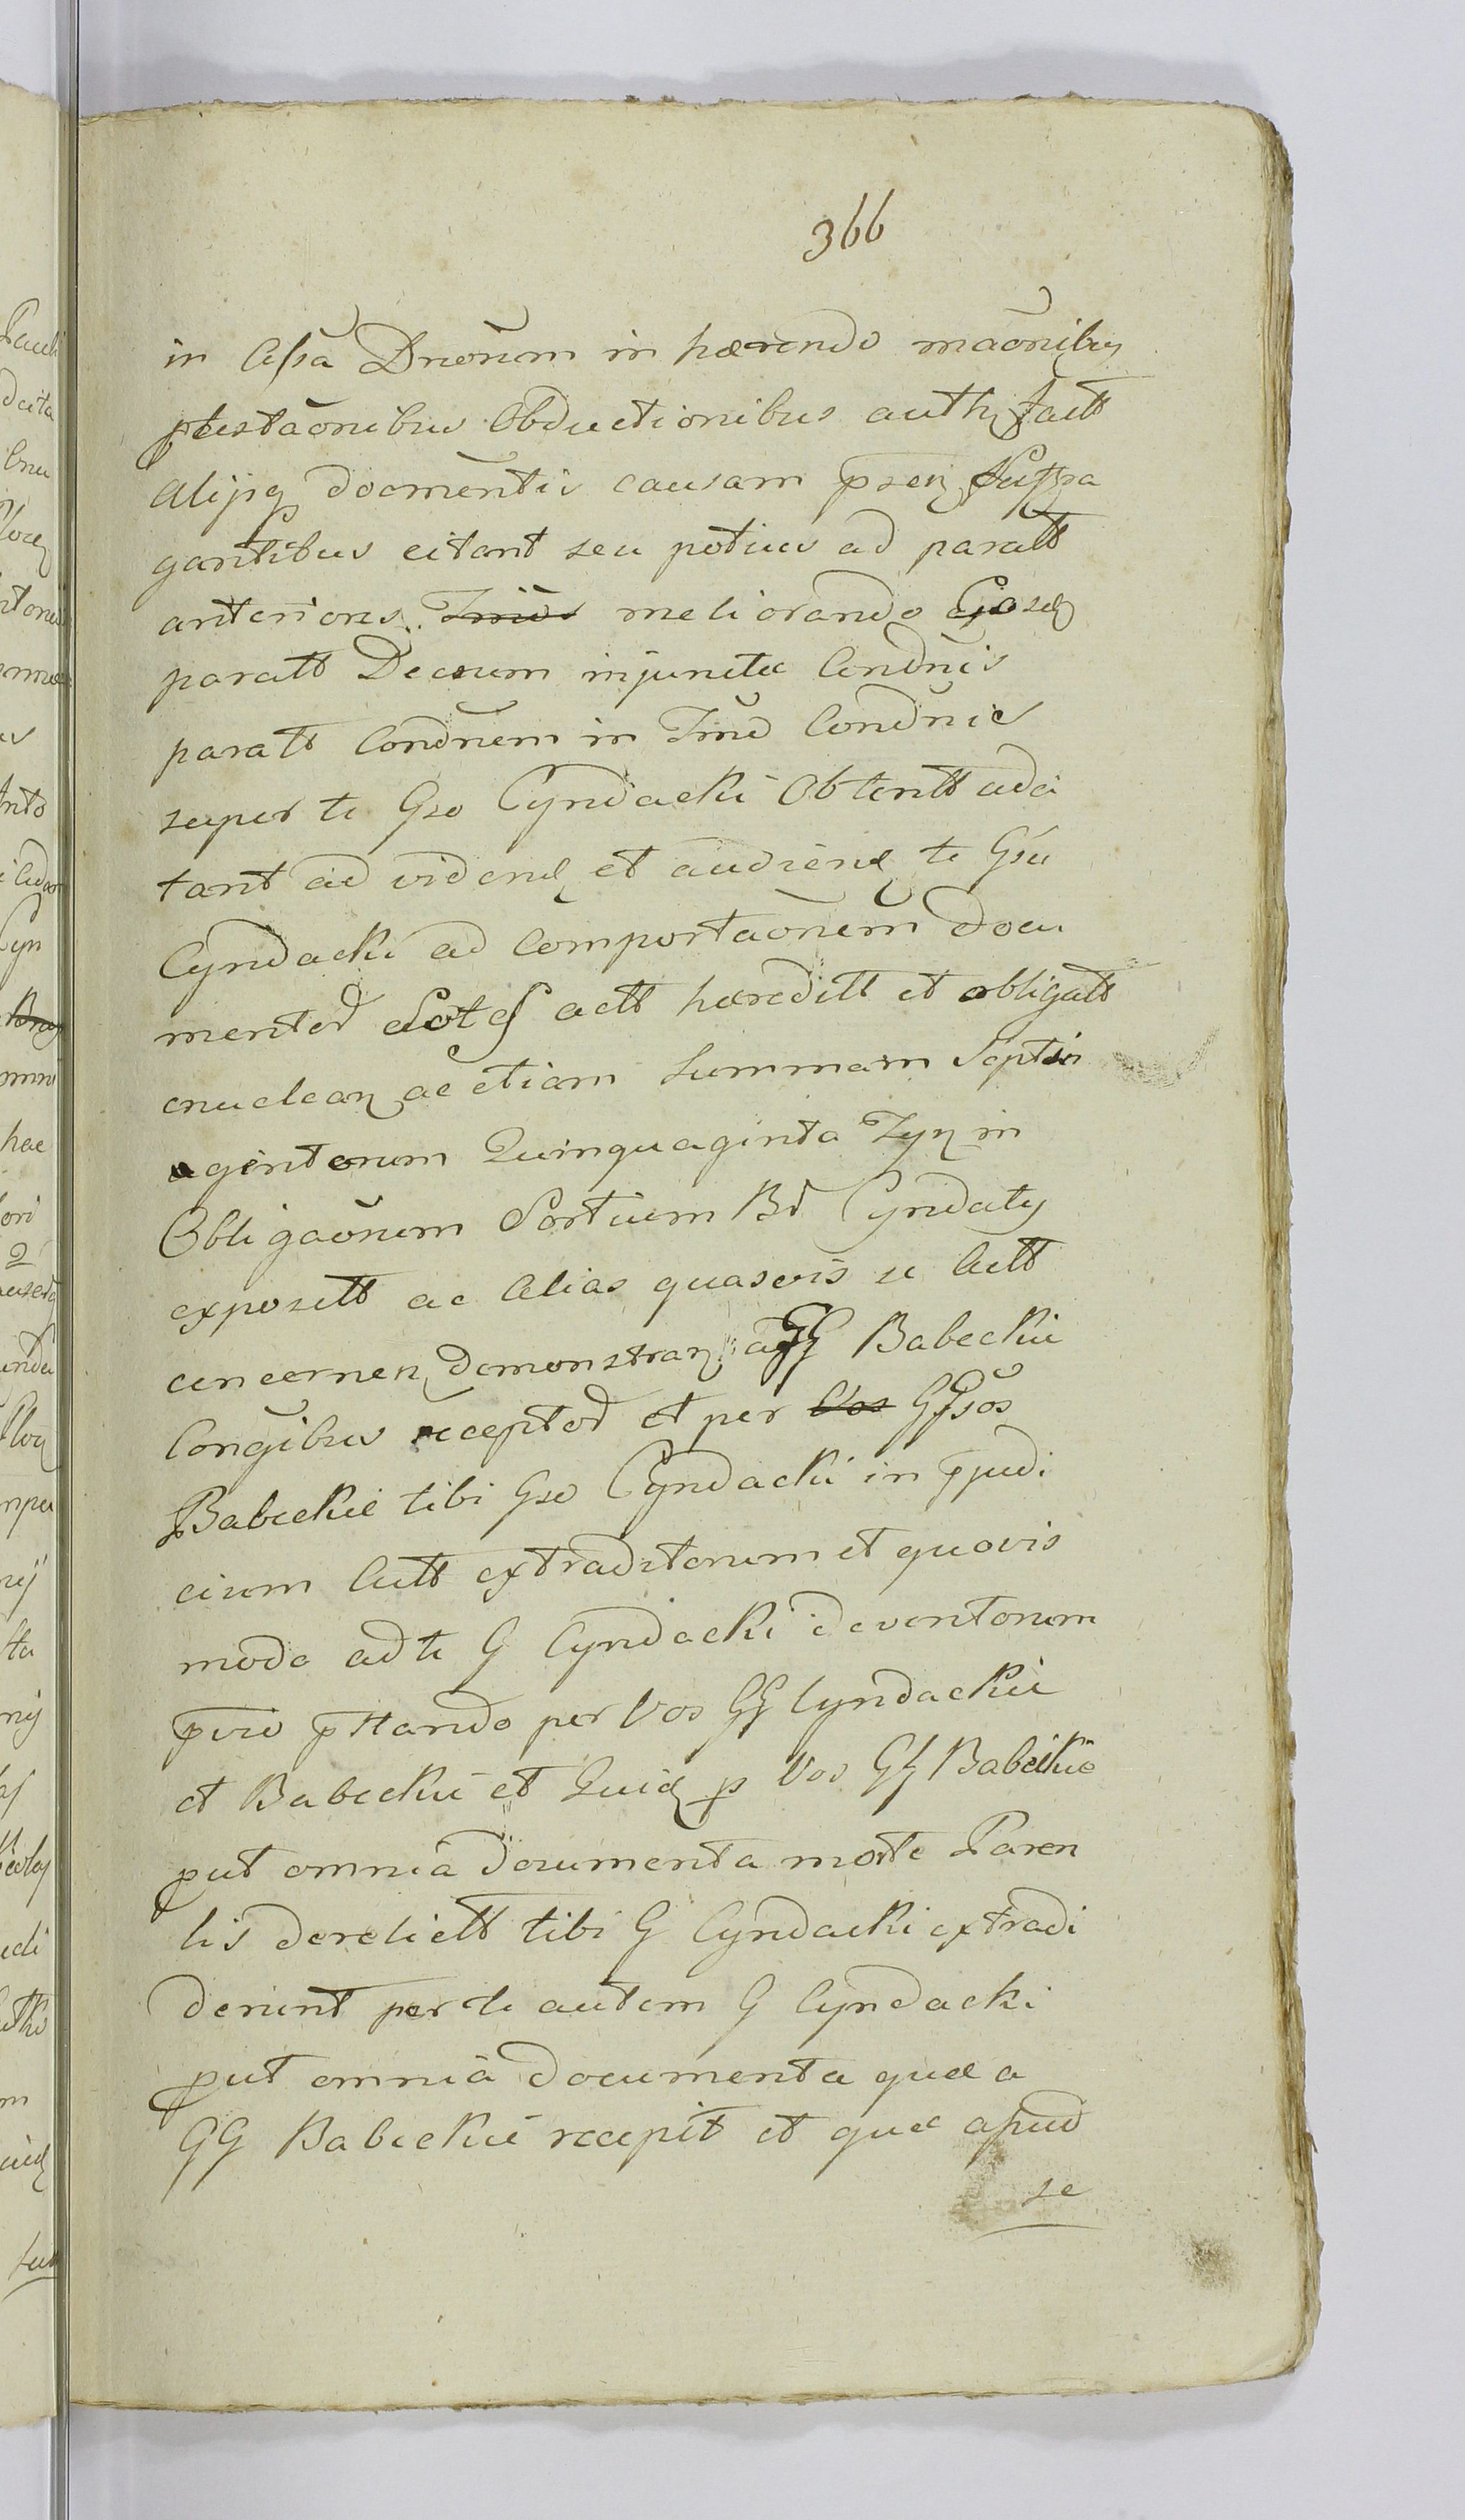 366
in Cassã Dnorũm in hærendo maõnibus
ptestaõnibus Obductionibus auth factt
Alijsq docmẽntis causam psen Suffra
gantibus citant seu potius ad paratt
anterions Tmĩs meliorando Ejosd
paratt Decrum injuncta Condñis
paratt Condñem in Tmõ Condñis
super te Gso Cyndacki Obtentt adci
tant ad videnđ et audienđ te Gsũ
Cyndacki ad Comportaõnem docu
mentoɍ actt hæreditt et obligatt
enuclean ac etiam Summam Septin
gentorum Quinquaginta Zyn in
Obligaõnem Sortium Bɍ Cyndaty
exposstt ac Alias quasvis se Actt
concernen demonstran a GG Babeckie
Congĩbus receptoɍ et per Vos GGsõs
Babeckie tibi Gso Cyndacki in pjudi
cium Actt extraditorum et quovis
modo ad te G Cyndacki deventorum
pvio pstando per Vos GG Cyndackie
et Babeckie et Quid p Vos GG Babeckie
put omnia documenta morte Paren
tis derelictt tibi G Cyndacki extradi
derunt per te autem G Cyndacki
put omnia documenta quæ a
GG Babeckie recepit et quæ apud
se